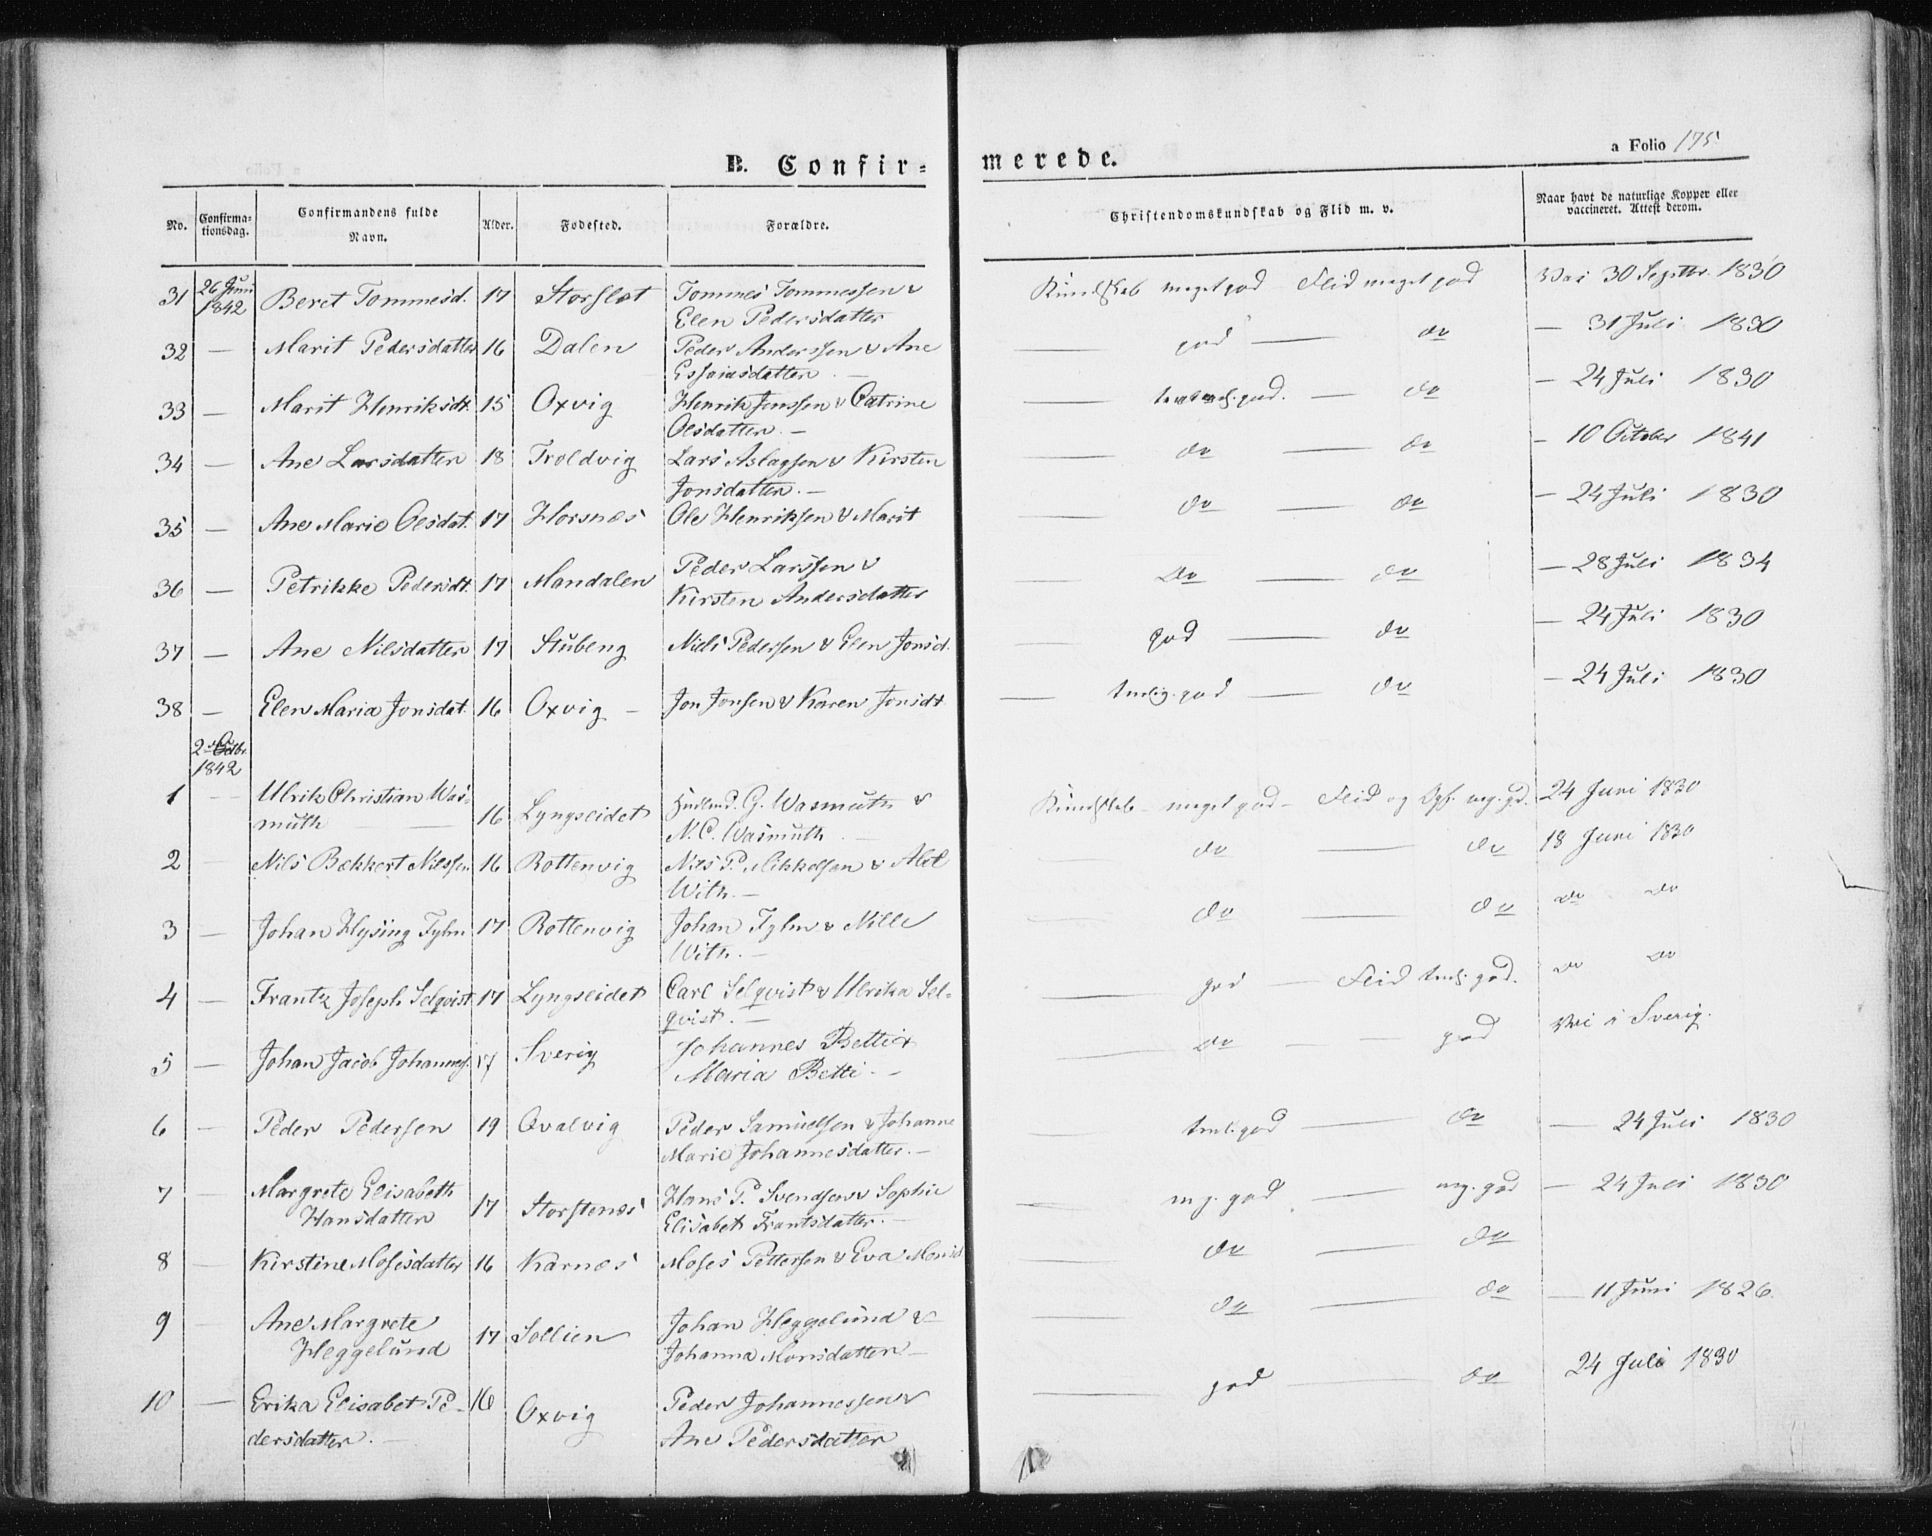 a Folio 175
B. Confir- merede.
No. Confirma-tionsdag. Confirmandens fulde Navn. Alder. Fødested. Forældre. Christendomskundskab og Flid m. v. Naar havt de naturlige Kopper eller vaccineret. Attest derom.
31 26 Juni 1842 Beret Tommesd. 17 Storslet Tommes Tommessen & Kundskab meget god Flid meget god Vac 30 Septbr. 1830
Elen Pedersdatter
32 — Marit Pedersdatter 16 Dalen Peder Anderssen & Ane — god — do — 31 Juli 1830
Essaiasdatter —
33 — Marit Henriksdt. 15 Oxvig Henrik Jenssen & Catrine — god. — do — 24 Juli 1830
Olsdatter. —
34 — Ane Larsdatter 18 Troldvig Lars Aslagsen & Kirsten — do — do — 10 October 1841
Jonsdatter. —
35 — Ane Marie Olsdat. 17 Horsnæs Ole Henriksen & Marit — do — do — 24 Juli 1830
36 — Petrikke Pedersdt. 17 Mandalen Peder Larssen & do — do — 28 Juli 1834
Kirsten Andersdatter
37 — Ane Nilsdatter 17 Stubeng Niels Pedersen & Elen Jonsd. — god — do — 24 Juli 1830
38 — Elen Maria Jonsdat. 16 Oxvig — Jon Jonsen & Karen Jonsdt — temlig. god — do — 24 Juli 1830
2den Octbr
1842
1 — Ulrik Christian Was- 16 Lyngseidet G. Wasmuth & Kundskab — meget god — Flid og Opf. meg. gd. 24 Juni 1830
muth — N. C. Wasmuth —
2 — Nils Bekkert Nilssen 16 Rottenvig Nils P. Mikkelsen & Abel do — do 18 Juni 1830
With. —
3 — Johan Hysing Fylm 17 Rottenvig Johan Fylm & Nille — do — do do do
With. —
4 — Frantz Joseph Selqvist 17 Lyngseidet Carl Selqvist & Ulrika Sel- — god — Flid teml. god. do do
qvist. —
5 — Johan Jacob Johannes. 17 Sverig Johannes Betti & — do — god Vac i Sverig.
Maria Betti —
6 — Peder Pedersen 19 Qvalvig Peder Samuelsen & Johanne — teml. god — do — 24 Juli 1830
Marie Johannesdatter. —
7 — Margrete Elisabeth 17 Storstenæs Hans P. Svendsen & Sophie — mg. god — meg. god — 24 Juli 1830
Hansdatter Elisabet Frantsdatter. —
8 — Kirstine Mosesdatter 16 Karnæs Moses Pettersen & Eva Monsd do — do
9 — Ane Margrete 17 Sollien Johan Heggelund & — do — do — 11 Juni 1826.
Heggelund Johanna Monsdatter —
10 — Erika Elisabet Pe- 16 Oxvig Peder Johannessen & — god — do 24 Juli 1830
dersdatter. — Ane Pedersdatter